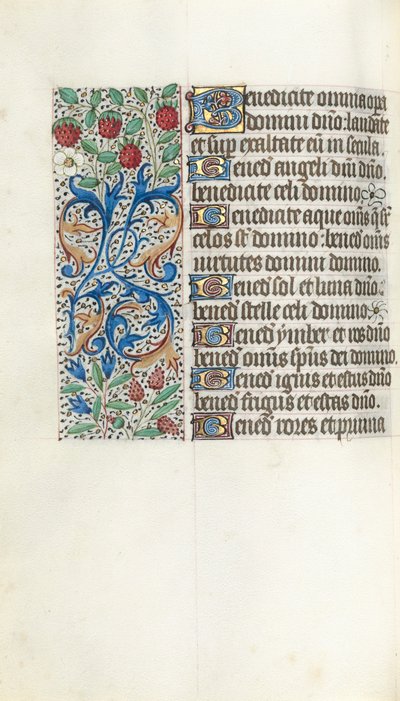 Benedicite omnia opa
domini dno: laudate
et sup exaltate eu in secula.
Bened angeli dni dno,
benedicite celi domino.
Benedicite aque oms q s
celos st domino: bened oms
uirtutes domini domino.
Bened sol et luna dno:
bened stelle celi domino.
Bened ymber et ros dno
bened omis spus dei domino.
Bened ignis et estus dno
bened frigus et estas dno.
Bened rores et pruina